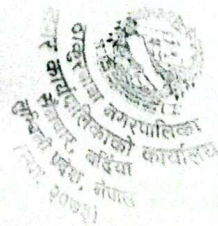 ठाकुरबाबा नगरपालिका
नगर कार्यपालिकाको कार्यालय
बर्दिया
लुम्बिनी प्रदेश, नेपाल